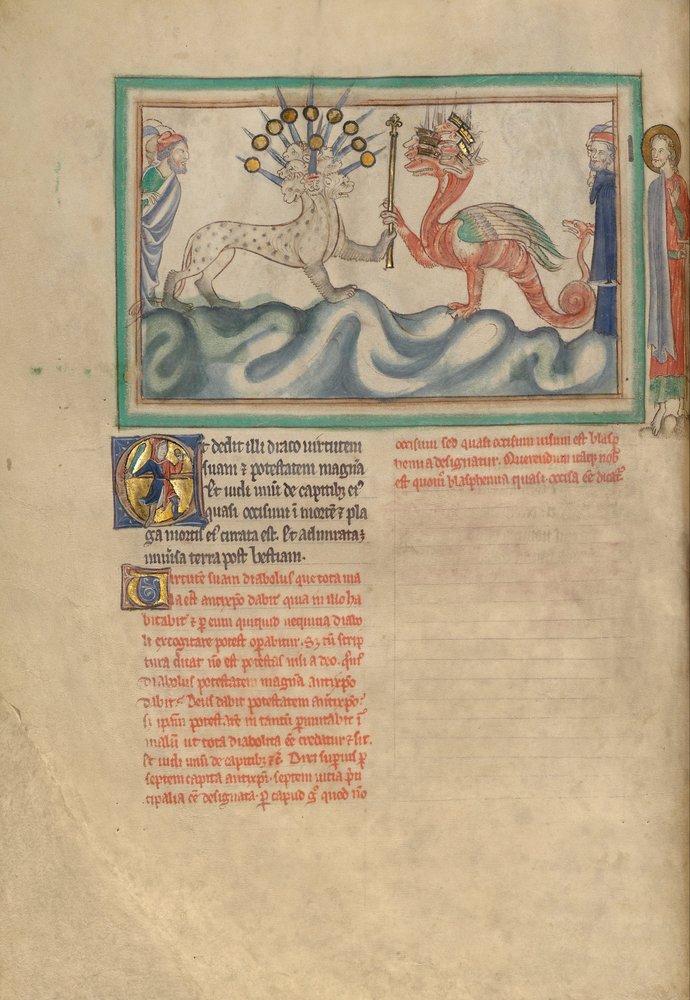 Et dedit illi draco virtutem
suam ⁊ potestatem magnā
Et vidi unū de capitibꝫ eiꝰ
quasi occisum ī mortē ⁊ pla
ga mortis eiꝰ curata est. Et admirataꝫ
univsa terra post bestiam.
Virtutē suam diabolus que tota ma
la est antixpō dabit quia in illo ha
bitabit ⁊ p eum quicquid nequitia diabo
li excogitare potest opabitur. Sꝫ cū scrip
tura dicat nō est potestas nisi a deo. quō
diabolus potestatem magnā antixpō
dabit. Deus dabit potestatem antixpō
si ipsum potestatē in tantū pmutabit ī
malū ut tota diabolica eē credatur ⁊ sit.
Et vidi unū de capitibꝫ ⁊c̄. Dixi supius p
septem capita antixpi. septem vitia pri
cipalia eē designata. P capud gͦ quod nō
occisum sed quasi occisum visum est blasp
hemia designatur. Querendum itaqꝫ nob
est quom̄ blasphemia quasi occisa eē dicat